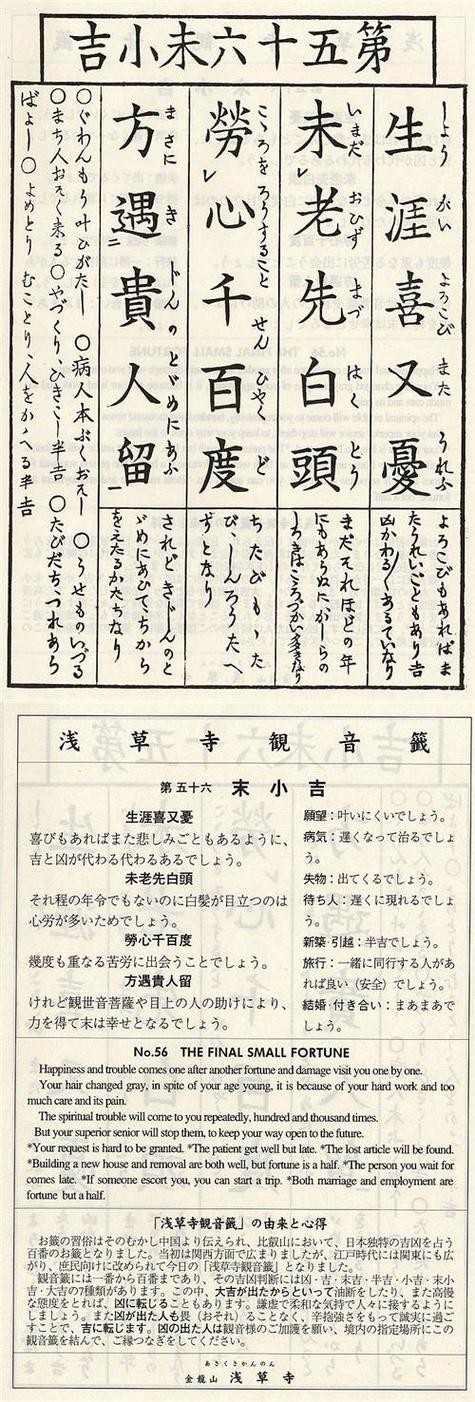 第五十六末小吉
生涯喜又憂
しやう がい よろこび また うれふ
未老先白頭
いまだ おひず まづ はく とう
勞心千百度
こゝろをろうすること せん ひやく ど
方遇貴人留
まさに きじんのとゞめにあふ
よろこびもあればま
たうれいごともあり吉
凶かわる〲あるていなり
まだそれほどの年
にもあらぬにかしらの
しろきはこゝろづかい多きなり
ちたびもゝた
び、しんろうたへ
ずとなり
されどきじんのと
ゞめにあひてちから
をえたるかたちなり
〇ぐわんもう叶ひがたし 〇病人本ぷくおそし 〇うせものいづる
〇まち人おそく来る〇やづくり、ひきこし半吉 〇たびだち、つれあら
ばよし〇よめとり むことり、人をかゝへる半吉
浅草寺観音籤
第五十六 末小吉
生涯喜又憂
喜びもあればまた悲しみごともあるように、
吉と凶が代わる代わるあるでしょう。
未老先白頭
それ程の年令でもないのに白髪が目立つのは
心労が多いためでしょう。
勞心千百度
幾度も重なる苦労に出会うことでしょう。
方遇貴人留
けれど観世音菩薩や目上の人の助けにより、
力を得て末は幸せとなるでしょう。
願望：叶いにくいでしょう。
病気：遅くなって治るでしょ
う。
失物：出てくるでしょう。
待ち人：遅くに現れるでしょ
う。
新築・引越：半吉でしょう。
旅行：一緒に同行する人があ
れば良い（安全）でしょう。
結婚・付き合い：まあまあで
しょう。
No.56 THE FINAL SMALL FORTUNE
Happiness and trouble comes one after another fortune and damage visit you one by one.
Your hair changed gray, in spite of your age young, it is because of your hard work and too
much care and its pain.
The spiritual trouble will come to you repeatedly, hundred and thousand times.
But your superior senior will stop them, to keep your way open to the future.
*Your request is hard to be granted. *The patient get well but late. *The lost article will be found.
*Building a new house and removal are both well, but fortune is a half. *The person you wait for
comes late. *If someone escort you, you can start a trip. *Both marriage and employment are
fortune but a half.
「浅草寺観音籤」の由来と心得
お籤の習俗はそのむかし中国より伝えられ、比叡山において、日本独特の吉凶を占う
百番のお籤となりました。当初は関西方面で広まりましたが、江戸時代には関東にも広
がり、庶民向けに改められて今日の「浅草寺観音籤」となりました。
観音籤には一番から百番まであり、その吉凶判断には凶・吉・末吉・半吉・小吉・末小
吉・大吉の7種類があります。この中、大吉が出たからといって油断をしたり、また高慢
な態度をとれば、凶に転じることもあります。謙虚で柔和な気持で人々に接するように
しましょう。また凶が出た人も畏（おそれ）ることなく、辛抱強さをもって誠実に過ご
すことで、吉に転じます。凶の出た人は観音様のご加護を願い、境内の指定場所にこの
観音籤を結んで、ご縁つなぎをしてください。
あさくさかんのん
金龍山 浅草寺